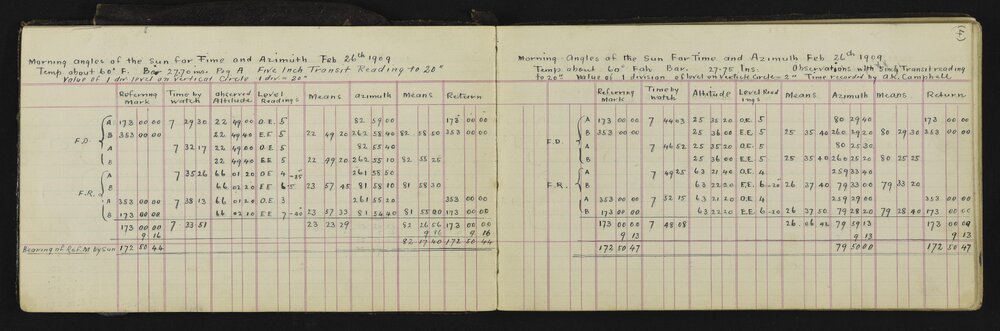 Morning angles of the Sun for Time and Azimuth Feb 26th 1909
Temp. about 60° F. Bar 27.70 ins. Peg A Five Inch Transit Reading to 20"
Value of 1 div. level on Vertical Circle 1 div = 20"
Referring Mark Time by Watch observed Altitude Level Readings Means azimuth Means Return
F.D. A 173 00 00 7 29 30 22 49 00 O.E. 5 82 59 00 173 00 00
B 353 00 00 22 49 40 E.E 5 22 49 20 262 58 40 82 58 50 353 00 00
A 7 32 17 22 49 00 O.E 5 82 55 40
B 22 49 40 E.E 5 22 49 20 262 55 10 82 55 25
F.R. A 7 35 26 66 01 20 O.E 4 261 58 50
B 66 02 20 E.E 6 23 57 45 81 58 10 81 58 30
A 353 00 00 7 38 13 66 01 20 O.E. 3 261 55 20 353 00 00
B 173 00 00 66 02 10 E.E 7 23 57 33 81 54 40 81 55 00 173 00 00
173 00 00 7 33 51 23 23 29 82 26 56 173 00 00
9 16 9 16 9 16
82 17 40 172 50 44
Bearing of Ref. M by Sun 172 50 44
(4)
Morning Angles of the Sun For Time and Azimuth Feb 26th 1909
Temp. about 60° Fah Bar. 27.75 Ins. Observations with 5 inch Transit reading
to 20" Value of 1 division of level on Verticle Circle = 2" Time recorded by A.K. Campbell
Referring Mark Time by Watch Altitude Level Readings Means Azimuth Means Return
F.D. A 173 00 00 7 44 03 25 35 20 O.E. 5 80 29 40 173 00 00
B 353 00 00 25 36 00 E.E. 5 25 35 40 260 29 20 80 29 30 353 00 00
A 7 46 52 25 35 20 O.E. 5 80 25 30
B 25 36 00 E.E. 5 25 35 40 260 25 20 80 25 25
F.R. A 7 49 25 63 21 40 O.E. 4 259 33 40
B 63 22 20 E.E. 6 -20 26 37 40 79 33 00 79 33 20
A 353 00 00 7 52 15 63 21 20 O.E. 4 259 29 00 353 00 00
B 173 00 00 63 22 20 E.E. 6 -20 26 37 50 79 28 20 79 28 40 173 00 00
173 00 00 7 48 08 26 06 42 79 59 13 173 00 00
9 13 9 13 9 13
172 50 47 79 50 00 172 50 47